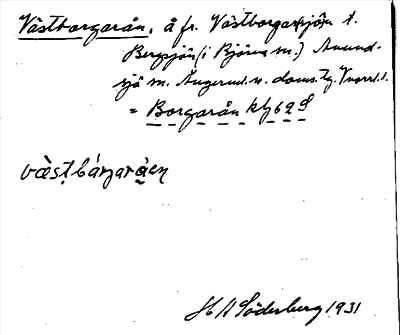 Västborgarån, å fr. Västborgarsjön t.
Bergsjön (i Björna sn.) Anund-
sjö sn. Ångerml. n. doms. tg. Vnorrl. l.
= Borgarån kbg 62 S
H A Söderberg 1931